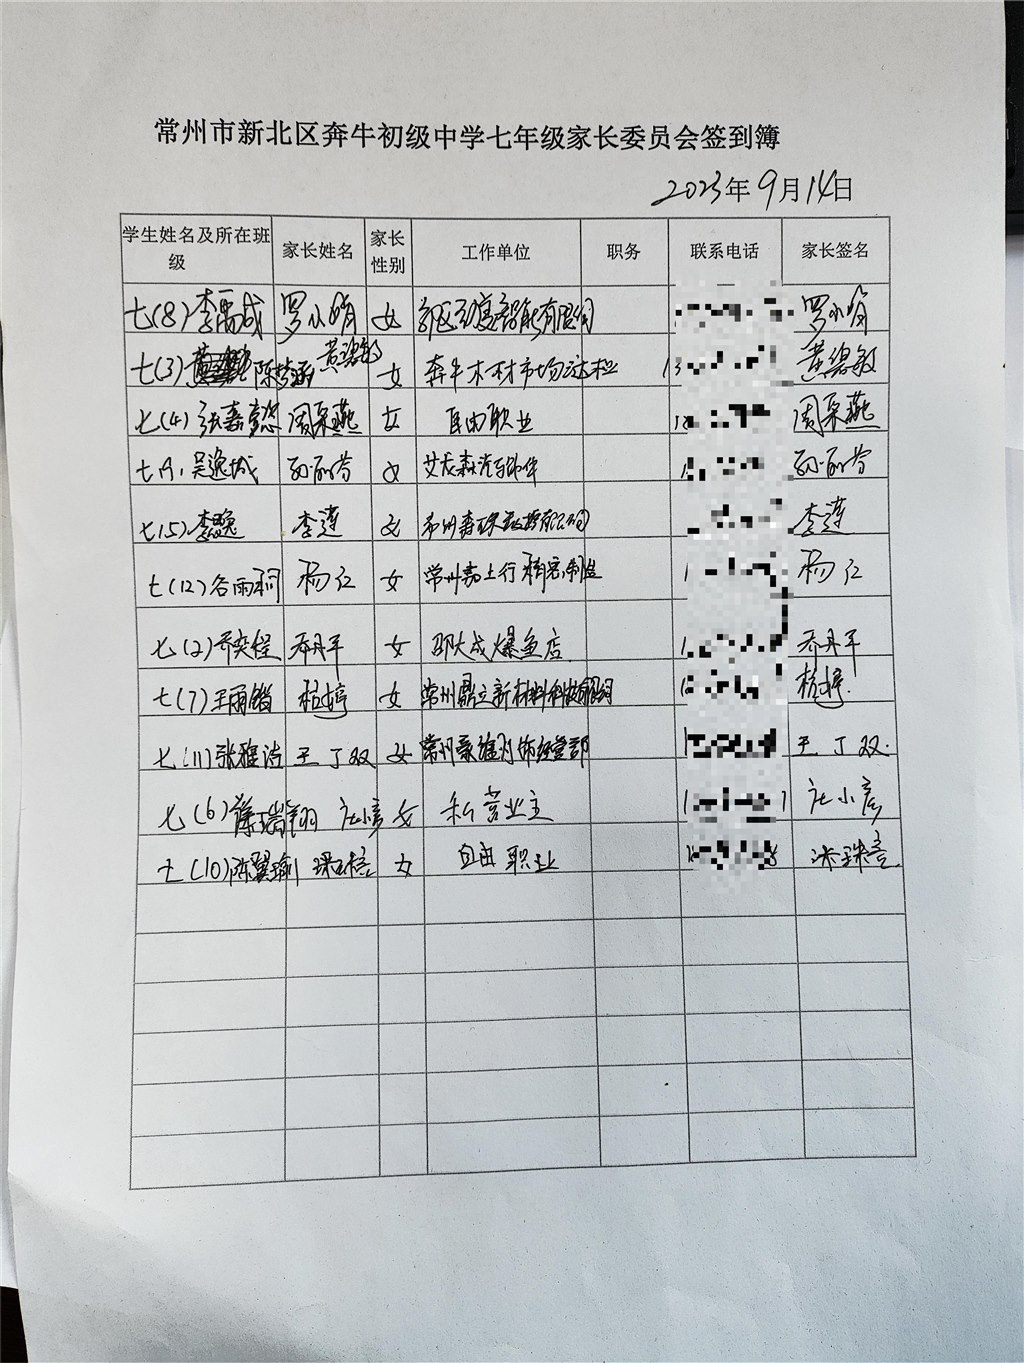 常州市新北区奔牛初级中学七年级家长委员会签到簿
2023年9月14日
学生姓名及所在班级 家长姓名 家长性别 工作单位 职务 联系电话 家长签名
七(8)李禹成 罗小娟 女 罗小娟
七(3) 陈梦涵 黄碧敏 女 奔牛木材市场 黄碧敏
七(4)张嘉懿 周采燕 女 自由职业 周采燕
吴逸城 孙丽芬 女 孙丽芬
七(5)李逸 李莲 女 李莲
七(12)谷雨桐 杨红 女 杨红
七(2)乔奕程 乔丹平 女 邵大成爆鱼店 乔丹平
七(7)王雨锴 杨婷 女 常州鼎立新材料科技有限公司 杨婷
七(11)张雅洁 王丁双 女 王丁双
七(6)薛瑞翔 杜小彦 女 私营业主 杜小彦
七(10)陈翼瑜 女 自由职业